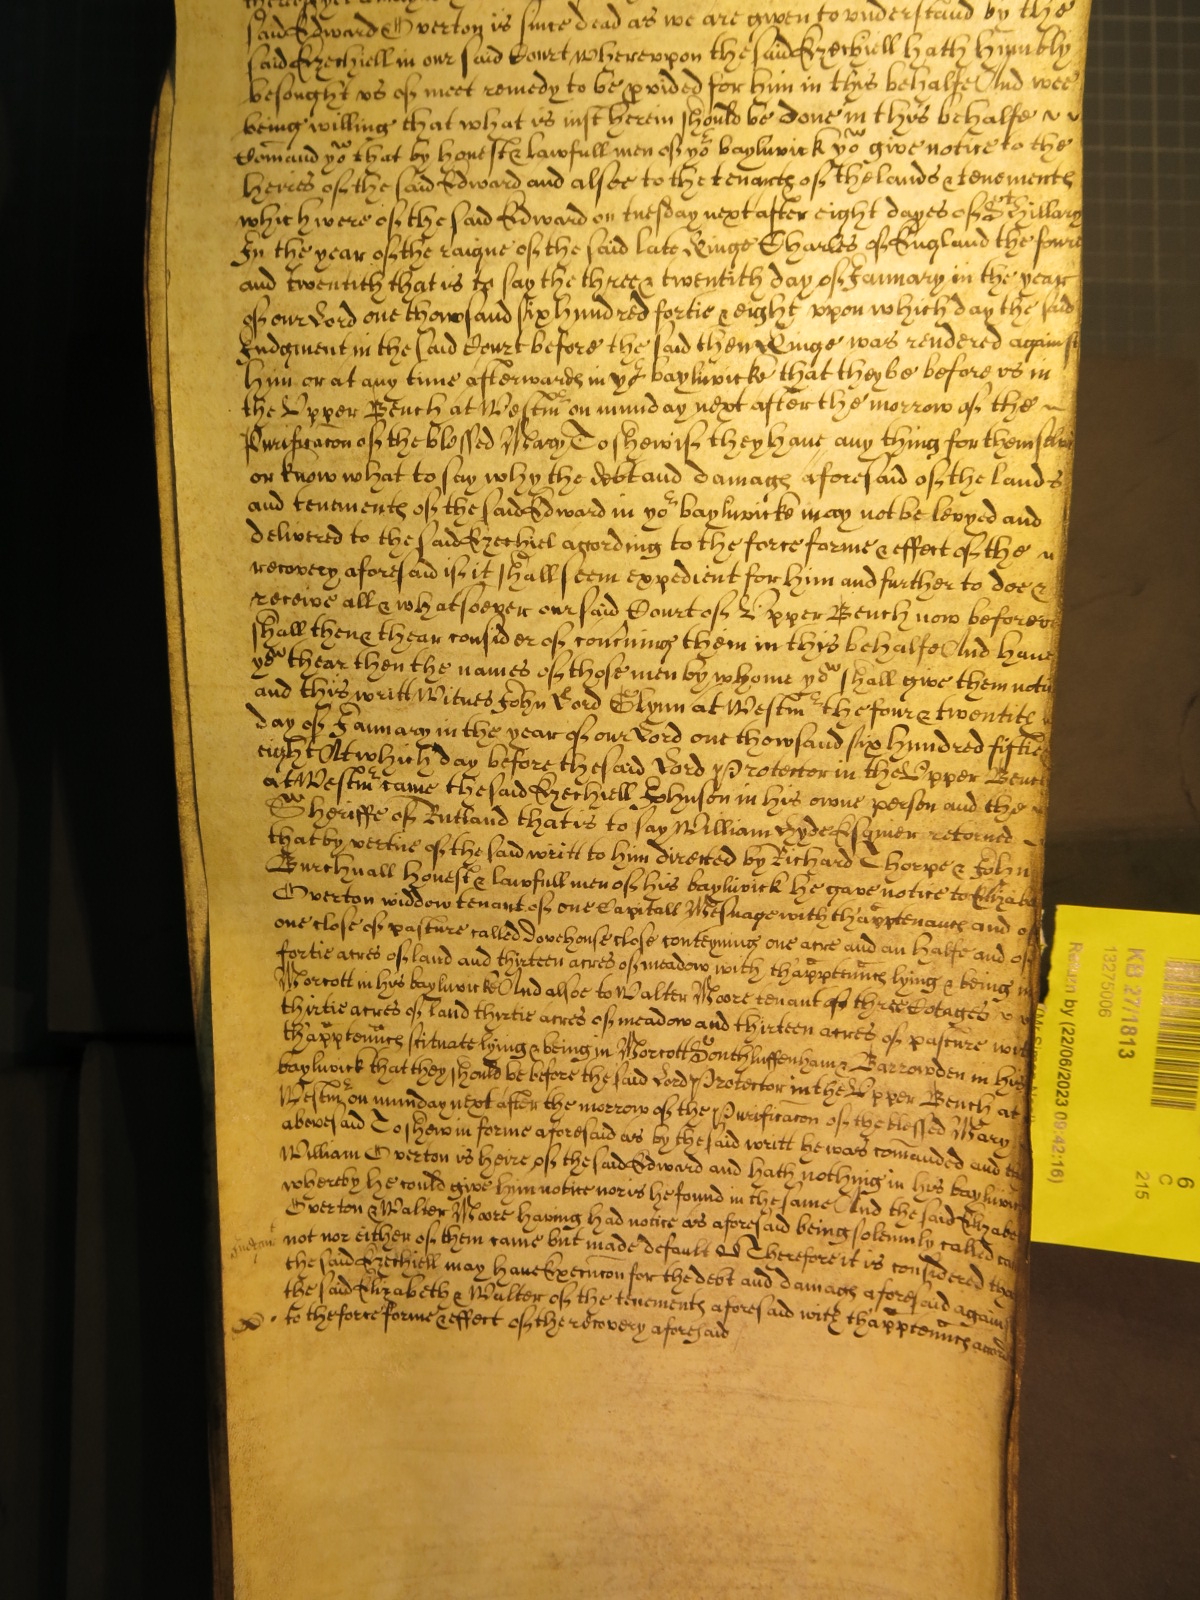 said Edward Overton is since dead as we are given to vnderstand by the
said Ezechiell in our said Court wherevpon the said Ezechiell hath humbly
besought vs of meet remedy to be pvided for him in this behalfe And wee
being willing that what is iust herein should be done in this behalfe
Comand yow that by honest & lawfull men of yor bayliwick yow give notice to the
heires of the said Edward and alsoe to the tenants of the lands & tenements
which were of the said Edward on tuesday next after eight dayes of St Hillary
In the year of the raigne of the said late Kinge Charles of England the fowre
and twentith that is to say the three & twentith day of January in the year
of our Lord one thowsand six hundred fortie & eight vpon which day the said
Judgment in the said Court before the said then Kinge was rendered against
him or at any time afterwards in yor bayliwicke that they be before vs in
the Vpper Bench at Westmr on munday next after the morrow of the
Purificacon of the blessed Mary To shew if they have any thing for themselves
or know what to say why the debt and damags aforesaid of the lands
and tenements of the said Edward in yor bayliwicke may not be levyed and
delivered to the said Ezechiel acording to the force forme & effect of the
recovery aforesaid if it shall seem expedient for him and further to doe &
receive all & whatsoever our said Court of Vpper Bench now before vs
shall then & thear consider of concning them in this behalfe And have
yow thear then the names of those men by whome yow shall give them notice
and this writt Witnes John Lord Glynn at Westmr the four & twentith
day of January in the year of our Lord one thowsand six hundred fiftie
eight At which day before the said Lord Protector in the Vpper Bench
at Westmr came the said Ezechiell Johnson in his owne person and the
Sheriffe of Rutland that is to say William Hyde Esquier retorned
that by vertue of the said writt to him directed by Richard Thorpe & John
Burchnall honest & lawfull men of his bayliwick he gave notice to Elizabeth
Overton widdow tenant of one Capitall Mesuage with thapptenancs and of
one close of pasture called Dovehouse close conteyning one acre and an halfe and of
fortie acres of land and thirteen acres of meadow with thapptenncs lying & being in
Morcott in his bayliwicke And alsoe to Walter Moore tenant of three Cotages
thirtie acres of land thirtie acres of meadow and thirteen acres of pasture with
thapptenncs scituate lying & being in Morcott Southluffenham & Barrowden in his
bayliwick that they should be before the said Lord Protector in the Vpper Bench at
Westmr on munday next after the morrow of the Purificacon of the blessed Mary
abovesaid To shew in forme aforesaid as by the said writt he was comanded and that
William Overton is heire of the said Edward and hath nothing in his bayliwick
whereby he could give him notice nor is he found in the same And the said Elizabeth
Overton & Walter Moore having had notice as aforesaid being solemnly called came
not nor either of them came but made default Therefore it is considered that
the said Ezechiell may have Execucon for the debt and damags aforesaid against
the said Elizabeth & Walter of the tenements aforesaid with thapptenncs acording
to the force forme & effect of the recovery aforesaid
KB 27/1813
13275006
Return by (22/06/2023 09:42:16)
6
C
215